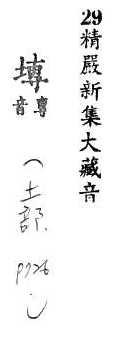 29精嚴新集大藏音
塼 專音
(土部. p926)